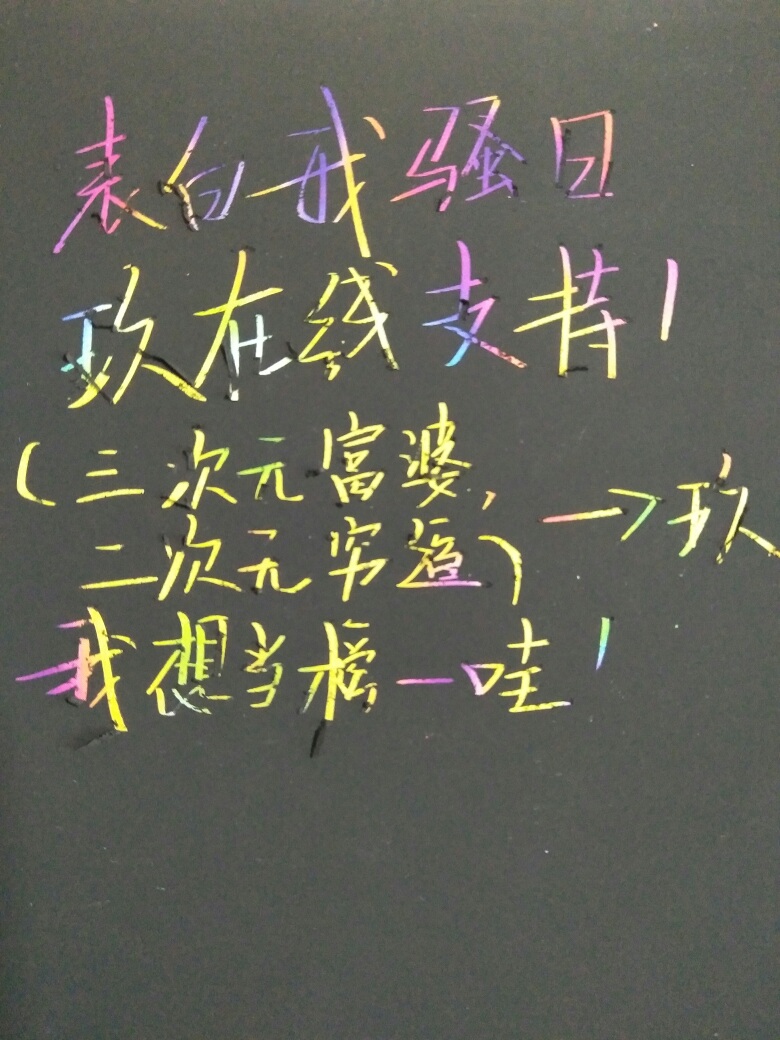 表白我骚日
玖在线支持!
(三次元富婆, →玖
二次元穷逼)
我想当榜一哇!